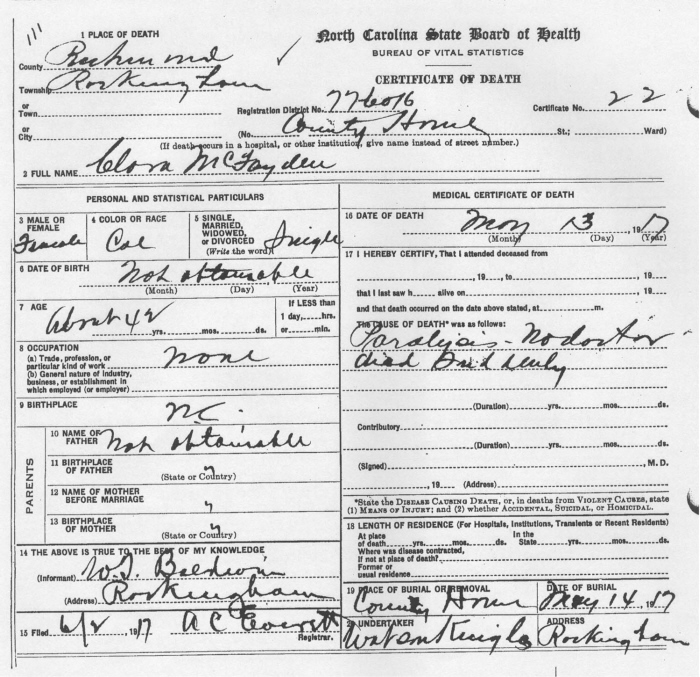 111
1 PLACE OF DEATH
North Carolina State Board of Health
BUREAU OF VITAL STATISTICS
CERTIFICATE OF DEATH
County Richmond
Township Rockingham
or
Town
Registration District No. 776076 Certificate No. 22
or
City (No. County Home St.; Ward)
(If death occurs in a hospital, or other institution, give name instead of street number.)
2 FULL NAME Clora McFayden
PERSONAL AND STATISTICAL PARTICULARS
3 MALE OR FEMALE Female
4 COLOR OR RACE Col
5 SINGLE, MARRIED, WIDOWED, or DIVORCED (Write the word) Single
6 DATE OF BIRTH Not obtainable
(Month) (Day) (Year)
7 AGE About 42 yrs. mos. ds.
If LESS than 1 day, hrs. or min.
8 OCCUPATION
(a) Trade, profession, or particular kind of work None
(b) General nature of industry, business, or establishment in which employed (or employer)
9 BIRTHPLACE N.C.
PARENTS
10 NAME OF FATHER Not obtainable
11 BIRTHPLACE OF FATHER "
(State or Country)
12 NAME OF MOTHER BEFORE MARRIAGE "
13 BIRTHPLACE OF MOTHER "
(State or Country)
14 THE ABOVE IS TRUE TO THE BEST OF MY KNOWLEDGE
(Informant) Baldwin
(Address) Rockingham
15 Filed 6/2, 1917 A C Everett
Registrar.
MEDICAL CERTIFICATE OF DEATH
16 DATE OF DEATH May 13, 1917
(Month) (Day) (Year)
17 I HEREBY CERTIFY, That I attended deceased from
, 19 , to , 19
that I last saw h alive on , 19
and that death occurred on the date above stated, at m.
The CAUSE OF DEATH* was as follows:
Paralysis - No doctor
died Suddenly
(Duration) yrs. mos. ds.
Contributory
(Duration) yrs. mos. ds.
(Signed) , M. D.
, 19 (Address)
*State the DISEASE CAUSING DEATH, or, in deaths from VIOLENT CAUSES, state
(1) MEANS OF INJURY; and (2) whether ACCIDENTAL, SUICIDAL, or HOMICIDAL.
18 LENGTH OF RESIDENCE (For Hospitals, Institutions, Transients or Recent Residents)
At place of death yrs. mos. ds. In the State yrs. mos. ds.
Where was disease contracted,
If not at place of death?
Former or
usual residence
19 PLACE OF BURIAL OR REMOVAL County Home
DATE OF BURIAL May 14, 1917
UNDERTAKER Watson King
ADDRESS Rockingham